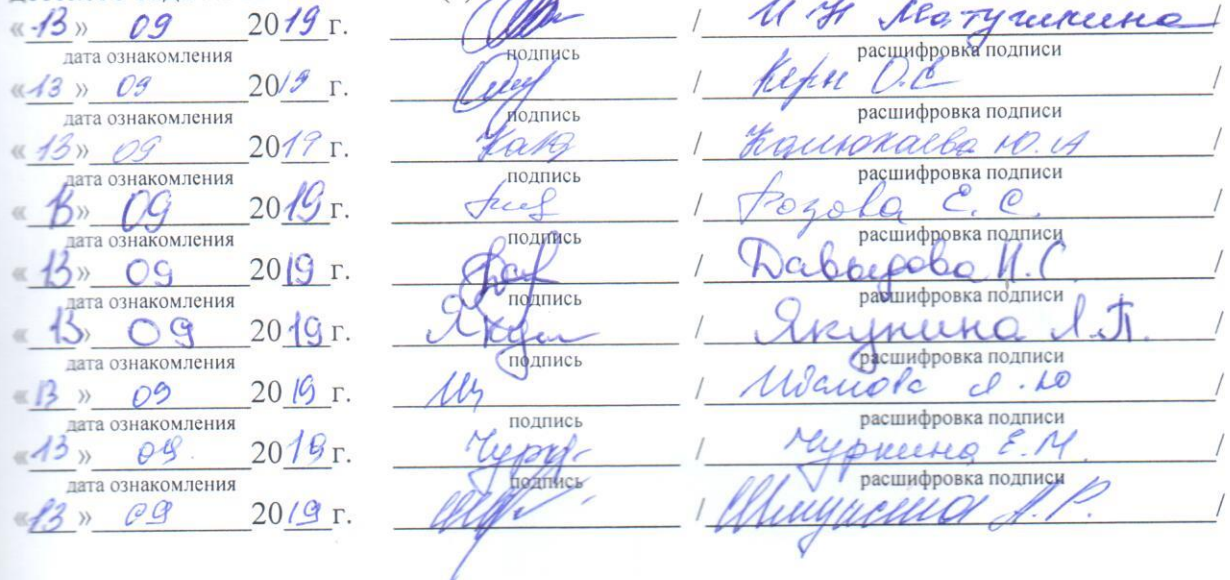 «13» 09 2019 г. / И Н Матушкина /
дата ознакомления подпись расшифровка подписи
«13» 09 2019 г. / Керн О.С /
дата ознакомления подпись расшифровка подписи
«13» 09 2019 г. / Ю.А /
дата ознакомления подпись расшифровка подписи
«13» 09 2019 г. / Розова Е.С. /
дата ознакомления подпись расшифровка подписи
«13» 09 2019 г. / Давыдова И.С /
дата ознакомления подпись расшифровка подписи
«13» 09 2019 г. / Якунина Л.П. /
дата ознакомления подпись расшифровка подписи
«13» 09 2019 г. / Ю /
дата ознакомления подпись расшифровка подписи
«13» 09. 2019 г. / Чуркина Е.М. /
дата ознакомления подпись расшифровка подписи
«13» 09 2019 г. / Р. /